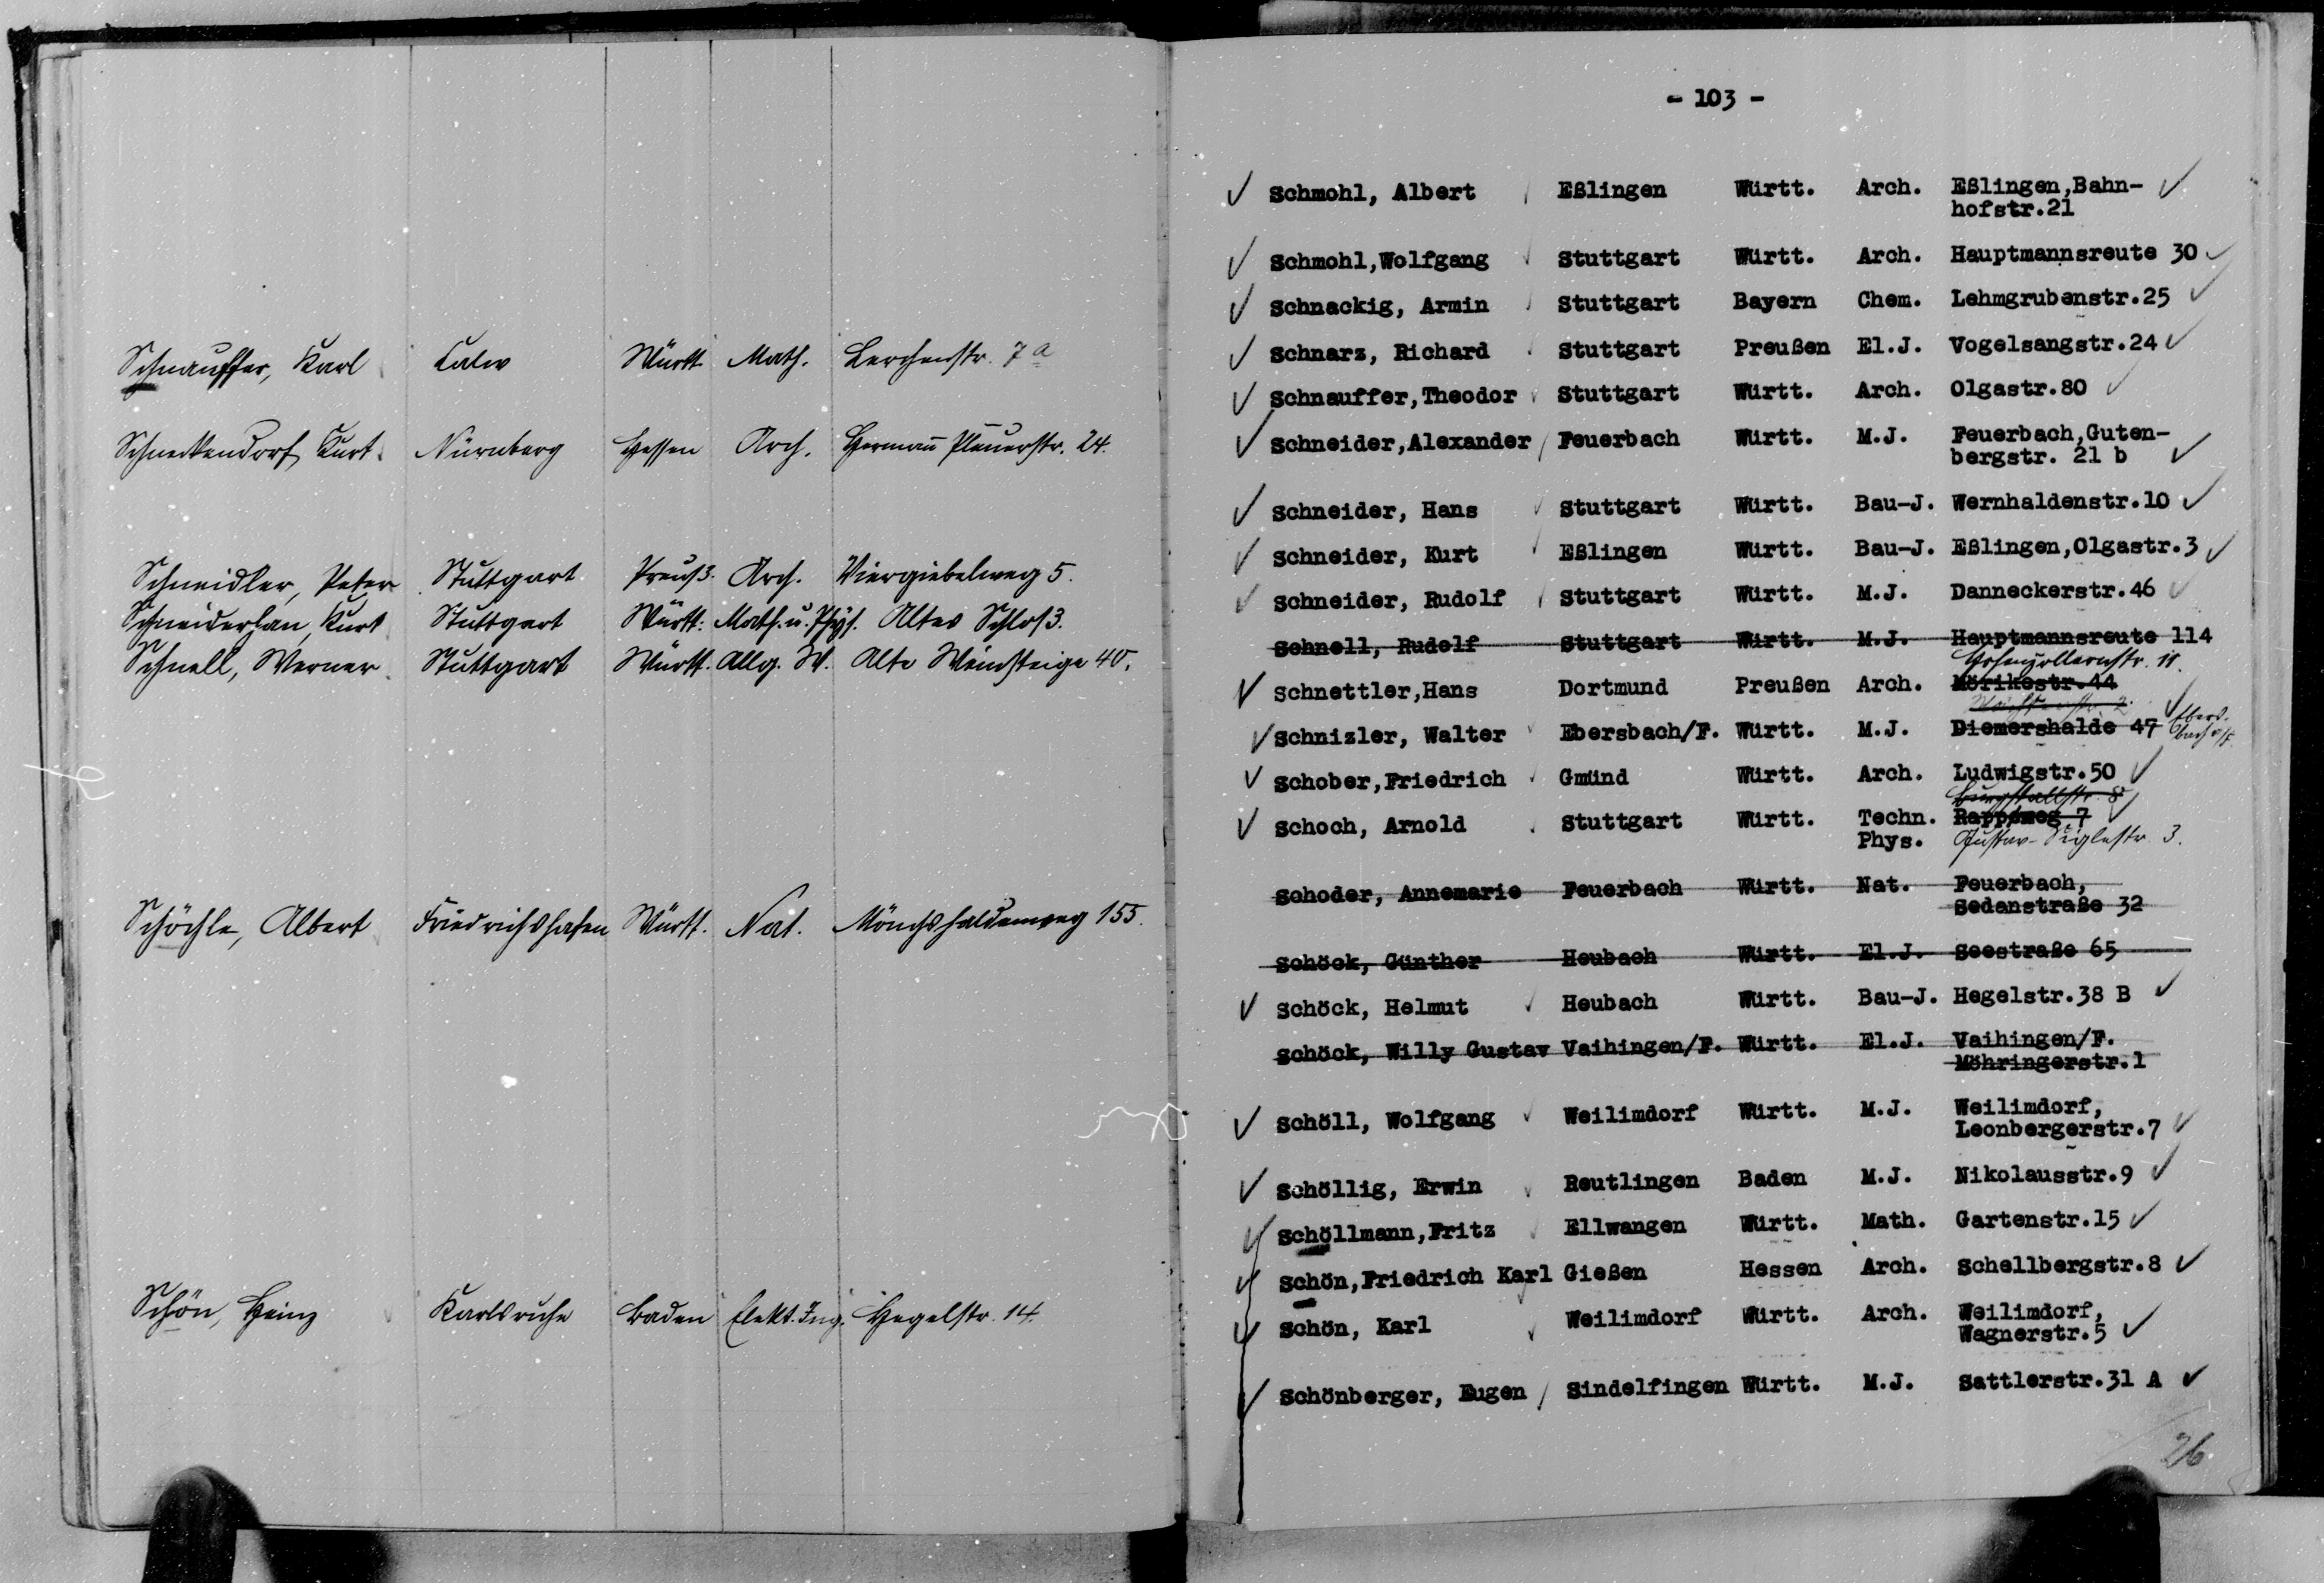 Schnauffer, Karl Calw Württ. Math. Lerchenstr. 7a
Schneckendorf, Kurt Nürnberg Hessen Arch. Hermann Pleuerstr. 24.
Schneidler, Peter Stuttgart Preuß. Arch. Viergiebelweg 5.
Schneiderhan, Kurt Stuttgart Württ. Math. u. Phys. Altes Schloß.
Schnell, Werner Stuttgart Württ. Allg. W. Alte Weinsteige 40.
Schöchle, Albert Friedrichshafen Württ. Nat. Mönchhaldenweg 155.
Schön, Heinz Karlsruhe Baden Elekt. Ing. Hegelstr. 14.
- 103 -
Schmohl, Albert Eßlingen Württ. Arch. Eßlingen,Bahn-
hofstr.21
Schmohl,Wolfgang Stuttgart Württ. Arch. Hauptmannsreute 30
Schnackig, Armin Stuttgart Bayern Chem. Lehmgrubenstr.25
Schnarz, Richard Stuttgart Preußen El.J. Vogelsangstr.24
Schnauffer,Theodor Stuttgart Württ. Arch. Olgastr.80
Schneider,Alexander Feuerbach Württ. M.J. Feuerbach,Guten-
bergstr. 21 b
Schneider, Hans Stuttgart Württ. Bau-J. Wernhaldenstr.10
Schneider, Kurt Eßlingen Württ. Bau-J. Eßlingen,Olgastr.3
Schneider, Rudolf Stuttgart Württ. M.J. Danneckerstr.46
Schnell, Rudolf Stuttgart Württ. M.J. Hauptmannsreute 114
Hohenzollernstr. 11.
Schnettler,Hans Dortmund Preußen Arch. Mörikestr.44
Schnizler, Walter Ebersbach/F. Württ. M.J. Diemershalde 47 Ebers-
bach a/F.
Schober,Friedrich Gmünd Württ. Arch. Ludwigstr.50
Burgstallstr. 8
Schoch, Arnold Stuttgart Württ. Techn. Rappweg 7
Phys. Gustav-Siglestr. 3.
Schoder, Annemarie Feuerbach Württ. Nat. Feuerbach,
Sedanstraße 32
Schöck, Günther Heubach Württ. El.J. Seestraße 65
Schöck, Helmut Heubach Württ. Bau-J. Hegelstr.38 B
Schöck, Willy Gustav Vaihingen/F. Württ. El.J. Vaihingen/F.
Möhringerstr.1
Schöll, Wolfgang Weilimdorf Württ. M.J. Weilimdorf,
Leonbergerstr.7
Schöllig, Erwin Reutlingen Baden M.J. Nikolausstr.9
Schöllmann,Fritz Ellwangen Württ. Math. Gartenstr.15
Schön,Friedrich Karl Gießen Hessen Arch. Schellbergstr.8
Schön, Karl Weilimdorf Württ. Arch. Weilimdorf,
Wagnerstr.5
Schönberger, Eugen Sindelfingen Württ. M.J. Sattlerstr.31 A
26